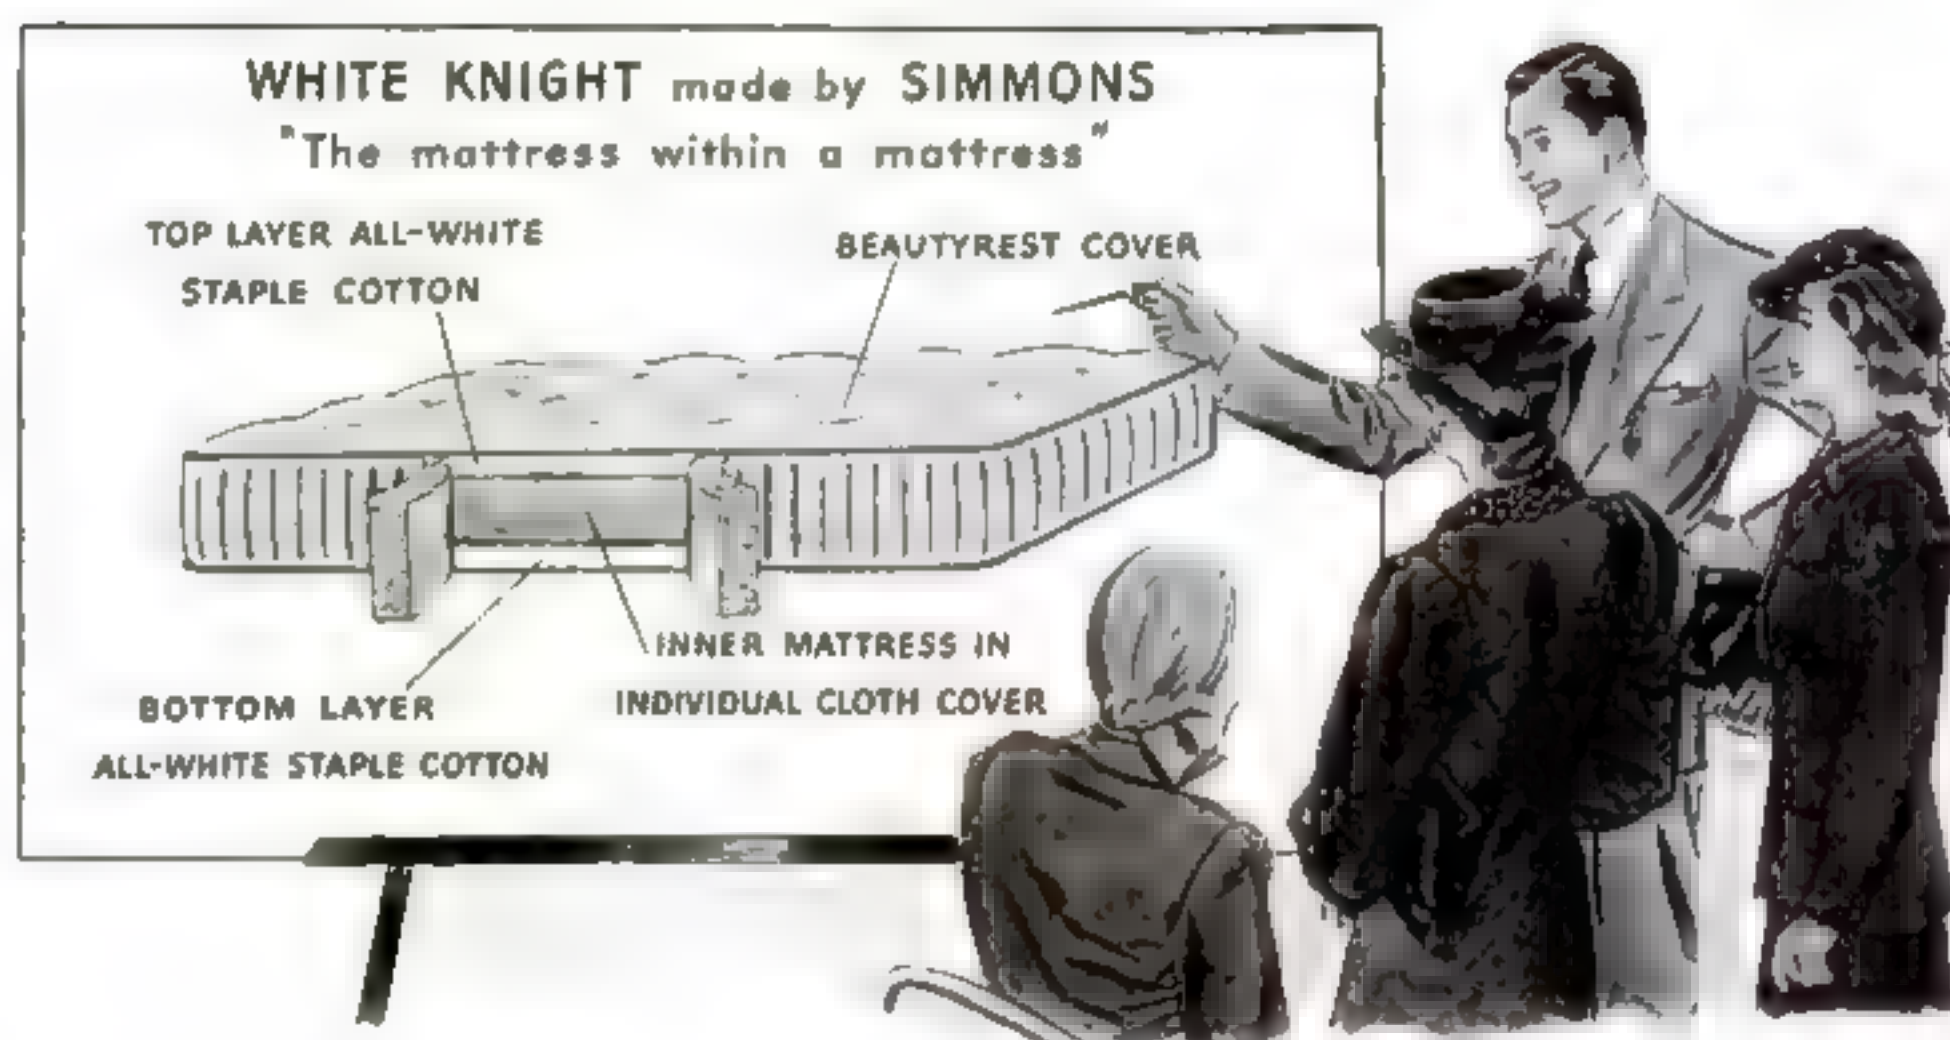 WHITE KNIGHT made by SIMMONS
"The mattress within a mattress"
TOP LAYER ALL-WHITE
STAPLE COTTON
BEAUTYREST COVER
INNER MATTRESS IN
INDIVIDUAL CLOTH COVER
BOTTOM LAYER
ALL-WHITE STAPLE COTTON